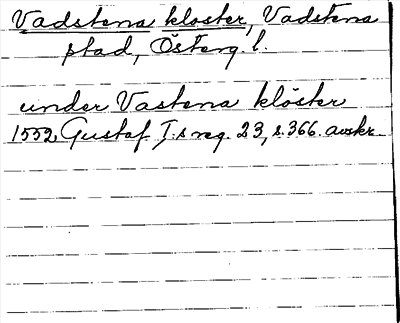 Vadstena kloster, Vadstena
stad, Österg. l.
under Vastena klöster
1552 Gustaf I:s reg. 23, s. 366. avskr.